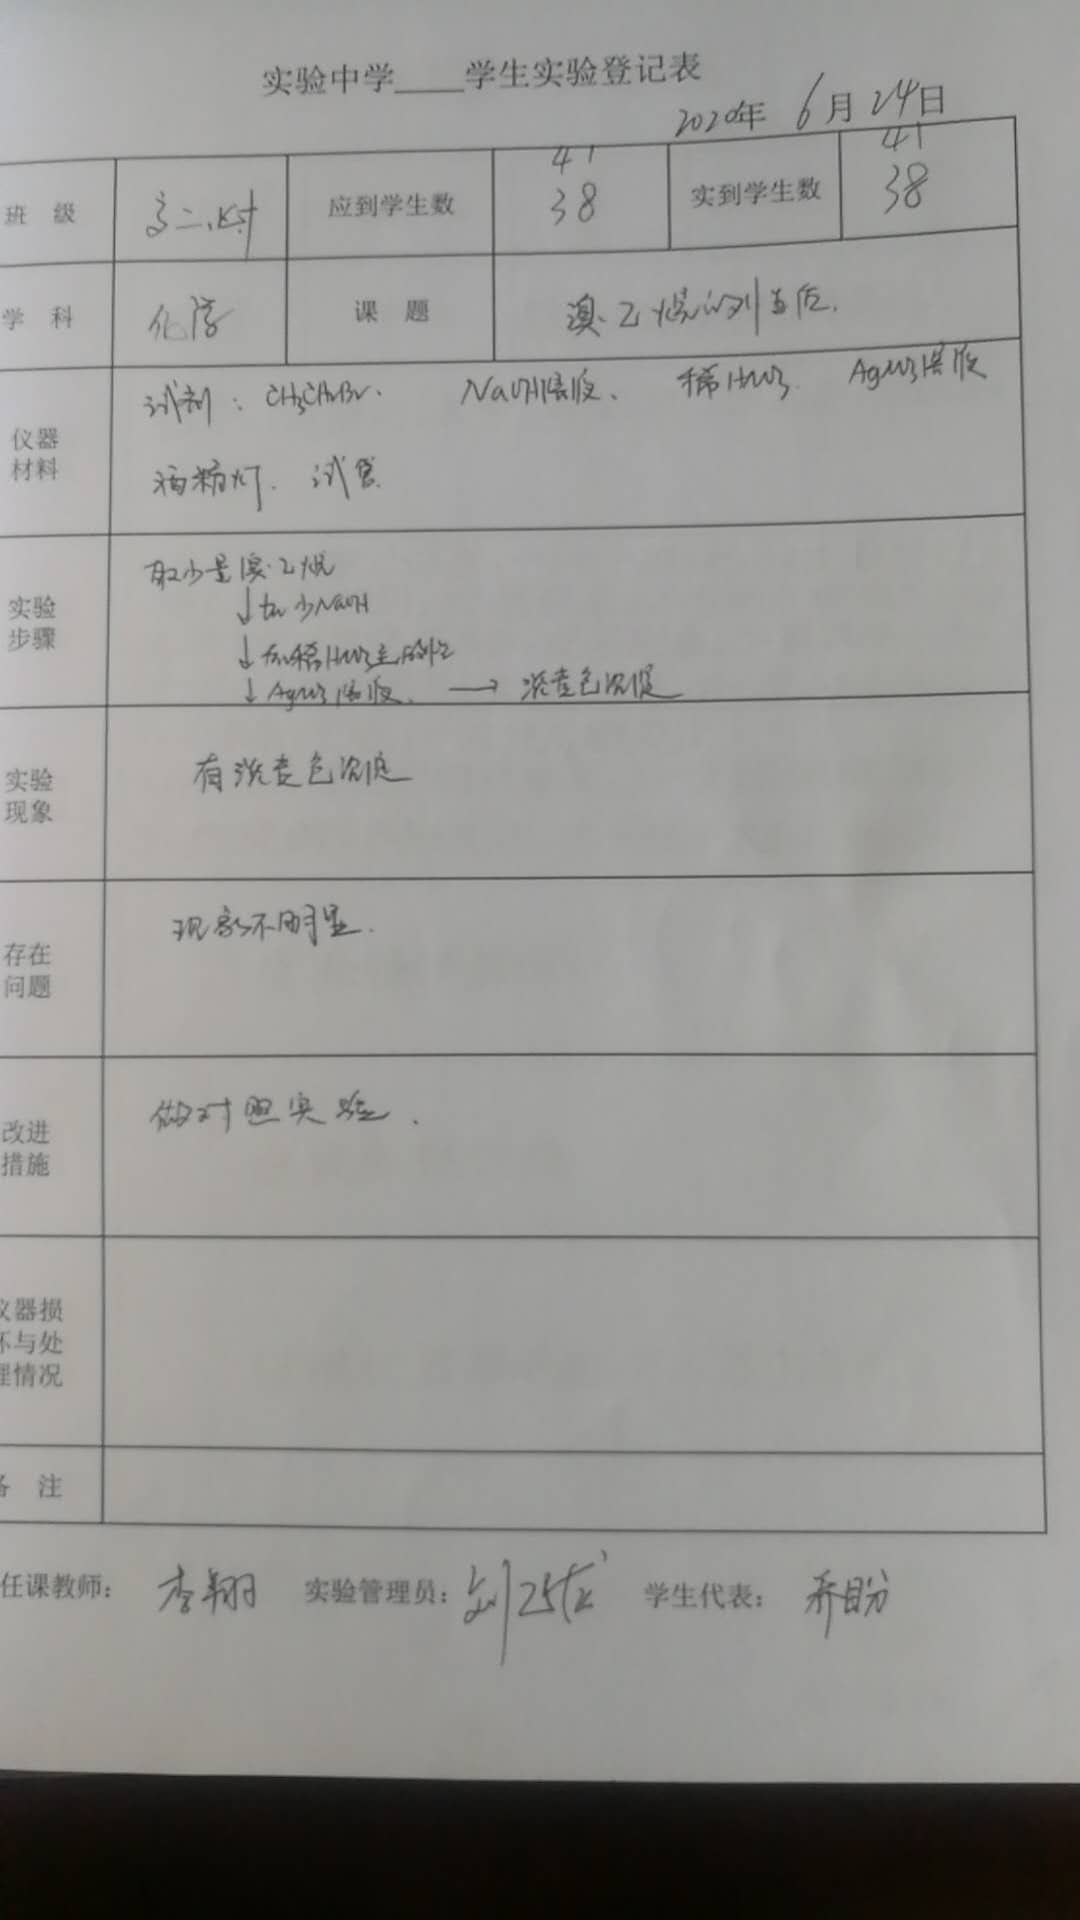 实验中学____学生实验登记表
2020年 6月24日
班 级 高二 应到学生数 41 38 实到学生数 41 38
学 科 化学 课 题 溴乙烷的性质.
仪器材料
试剂: CH3CH2Br. NaOH溶液. 稀HNO3. AgNO3溶液
酒精灯. 试管
实验步骤
取少量溴乙烷
↓加少NaOH
↓加稀HNO3至
↓AgNO3溶液. → 浅黄色沉淀
实验现象
有浅黄色沉淀
存在问题
现象不明显.
改进措施
做对照实验.
仪器损
坏与处
理情况
备 注
任课教师: 李翔 实验管理员: 刘 学生代表: 乔盼